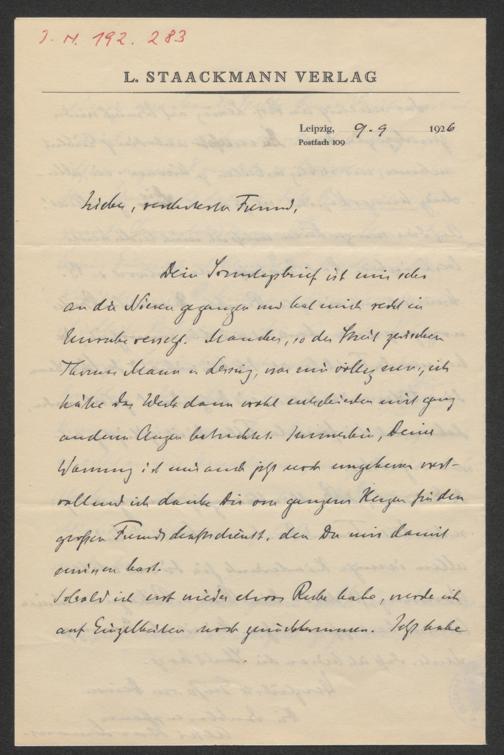 J. N. 192. 283
L. STAACKMANN VERLAG
Leipzig, 9. 9 1926
Postfach 109
Lieber, verehrtester Freund,
Dein Sonntagsbrief ist mir sehr
an die Nieren gegangen und hat mich recht in
Unruhe versetzt. Manches, so der Streit zwischen
Thomas Mann u Lessing, war mir völlig neu, ich
hätte das Werk dann wohl entschieden mit ganz
anderen Augen betrachtet. Immerhin, Deine
Warnung ist mir auch jetzt noch ungeheuer wert-
voll und ich danke Dir von ganzem Herzen für den
großen Freundschaftsdienst, den Du mir damit
erwiesen hast.
Sobald ich erst wieder etwas Ruhe habe, werde ich
auf Einzelheiten noch zurückkommen. Jetzt habe